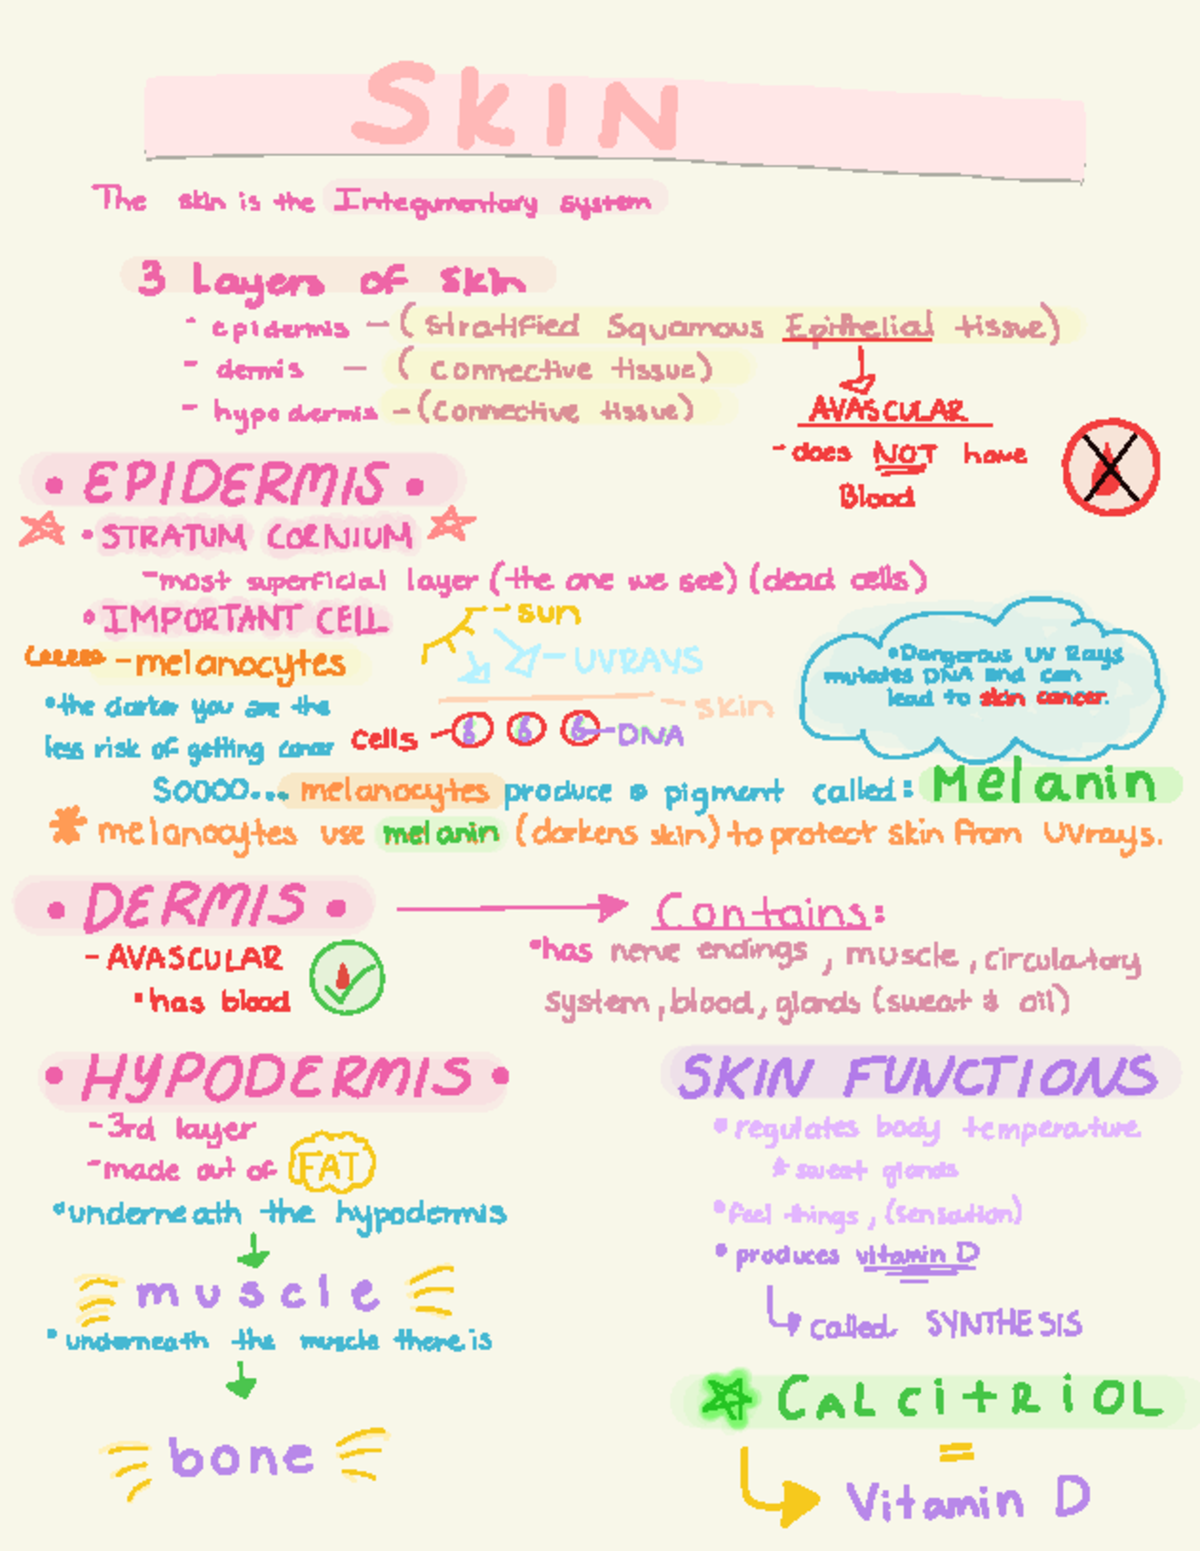 SKIN
The skin is the Integumentary system
3 Layers of skin
- epidermis - (Stratified Squamous Epithelial tissue)
- dermis - (connective tissue)
- hypodermis - (Connective tissue)
AVASCULAR
- does NOT have
Blood
• EPIDERMIS •
• STRATUM CORNIUM
- most superficial layer (the one we see) (dead cells)
• IMPORTANT CELL
- melanocytes
sun
UVRAYS
skin
cells
DNA
• the darker you are the
less risk of getting cancer
• Dangerous UV Rays
mutates DNA and can
lead to skin cancer.
SOOOO... melanocytes produce a pigment called: Melanin
* melanocytes use melanin (darkens skin) to protect skin from UVrays.
• DERMIS •
- AVASCULAR
• has blood
Contains:
• has nerve endings, muscle, circulatory
system, blood, glands (sweat & oil)
• HYPODERMIS •
- 3rd layer
- made out of FAT
• underneath the hypodermis
muscle
• underneath the muscle there is
bone
SKIN FUNCTIONS
• regulates body temperature
* sweat glands
• feel things, (sensation)
• produces vitamin D
called SYNTHESIS
CALCITRIOL
=
Vitamin D